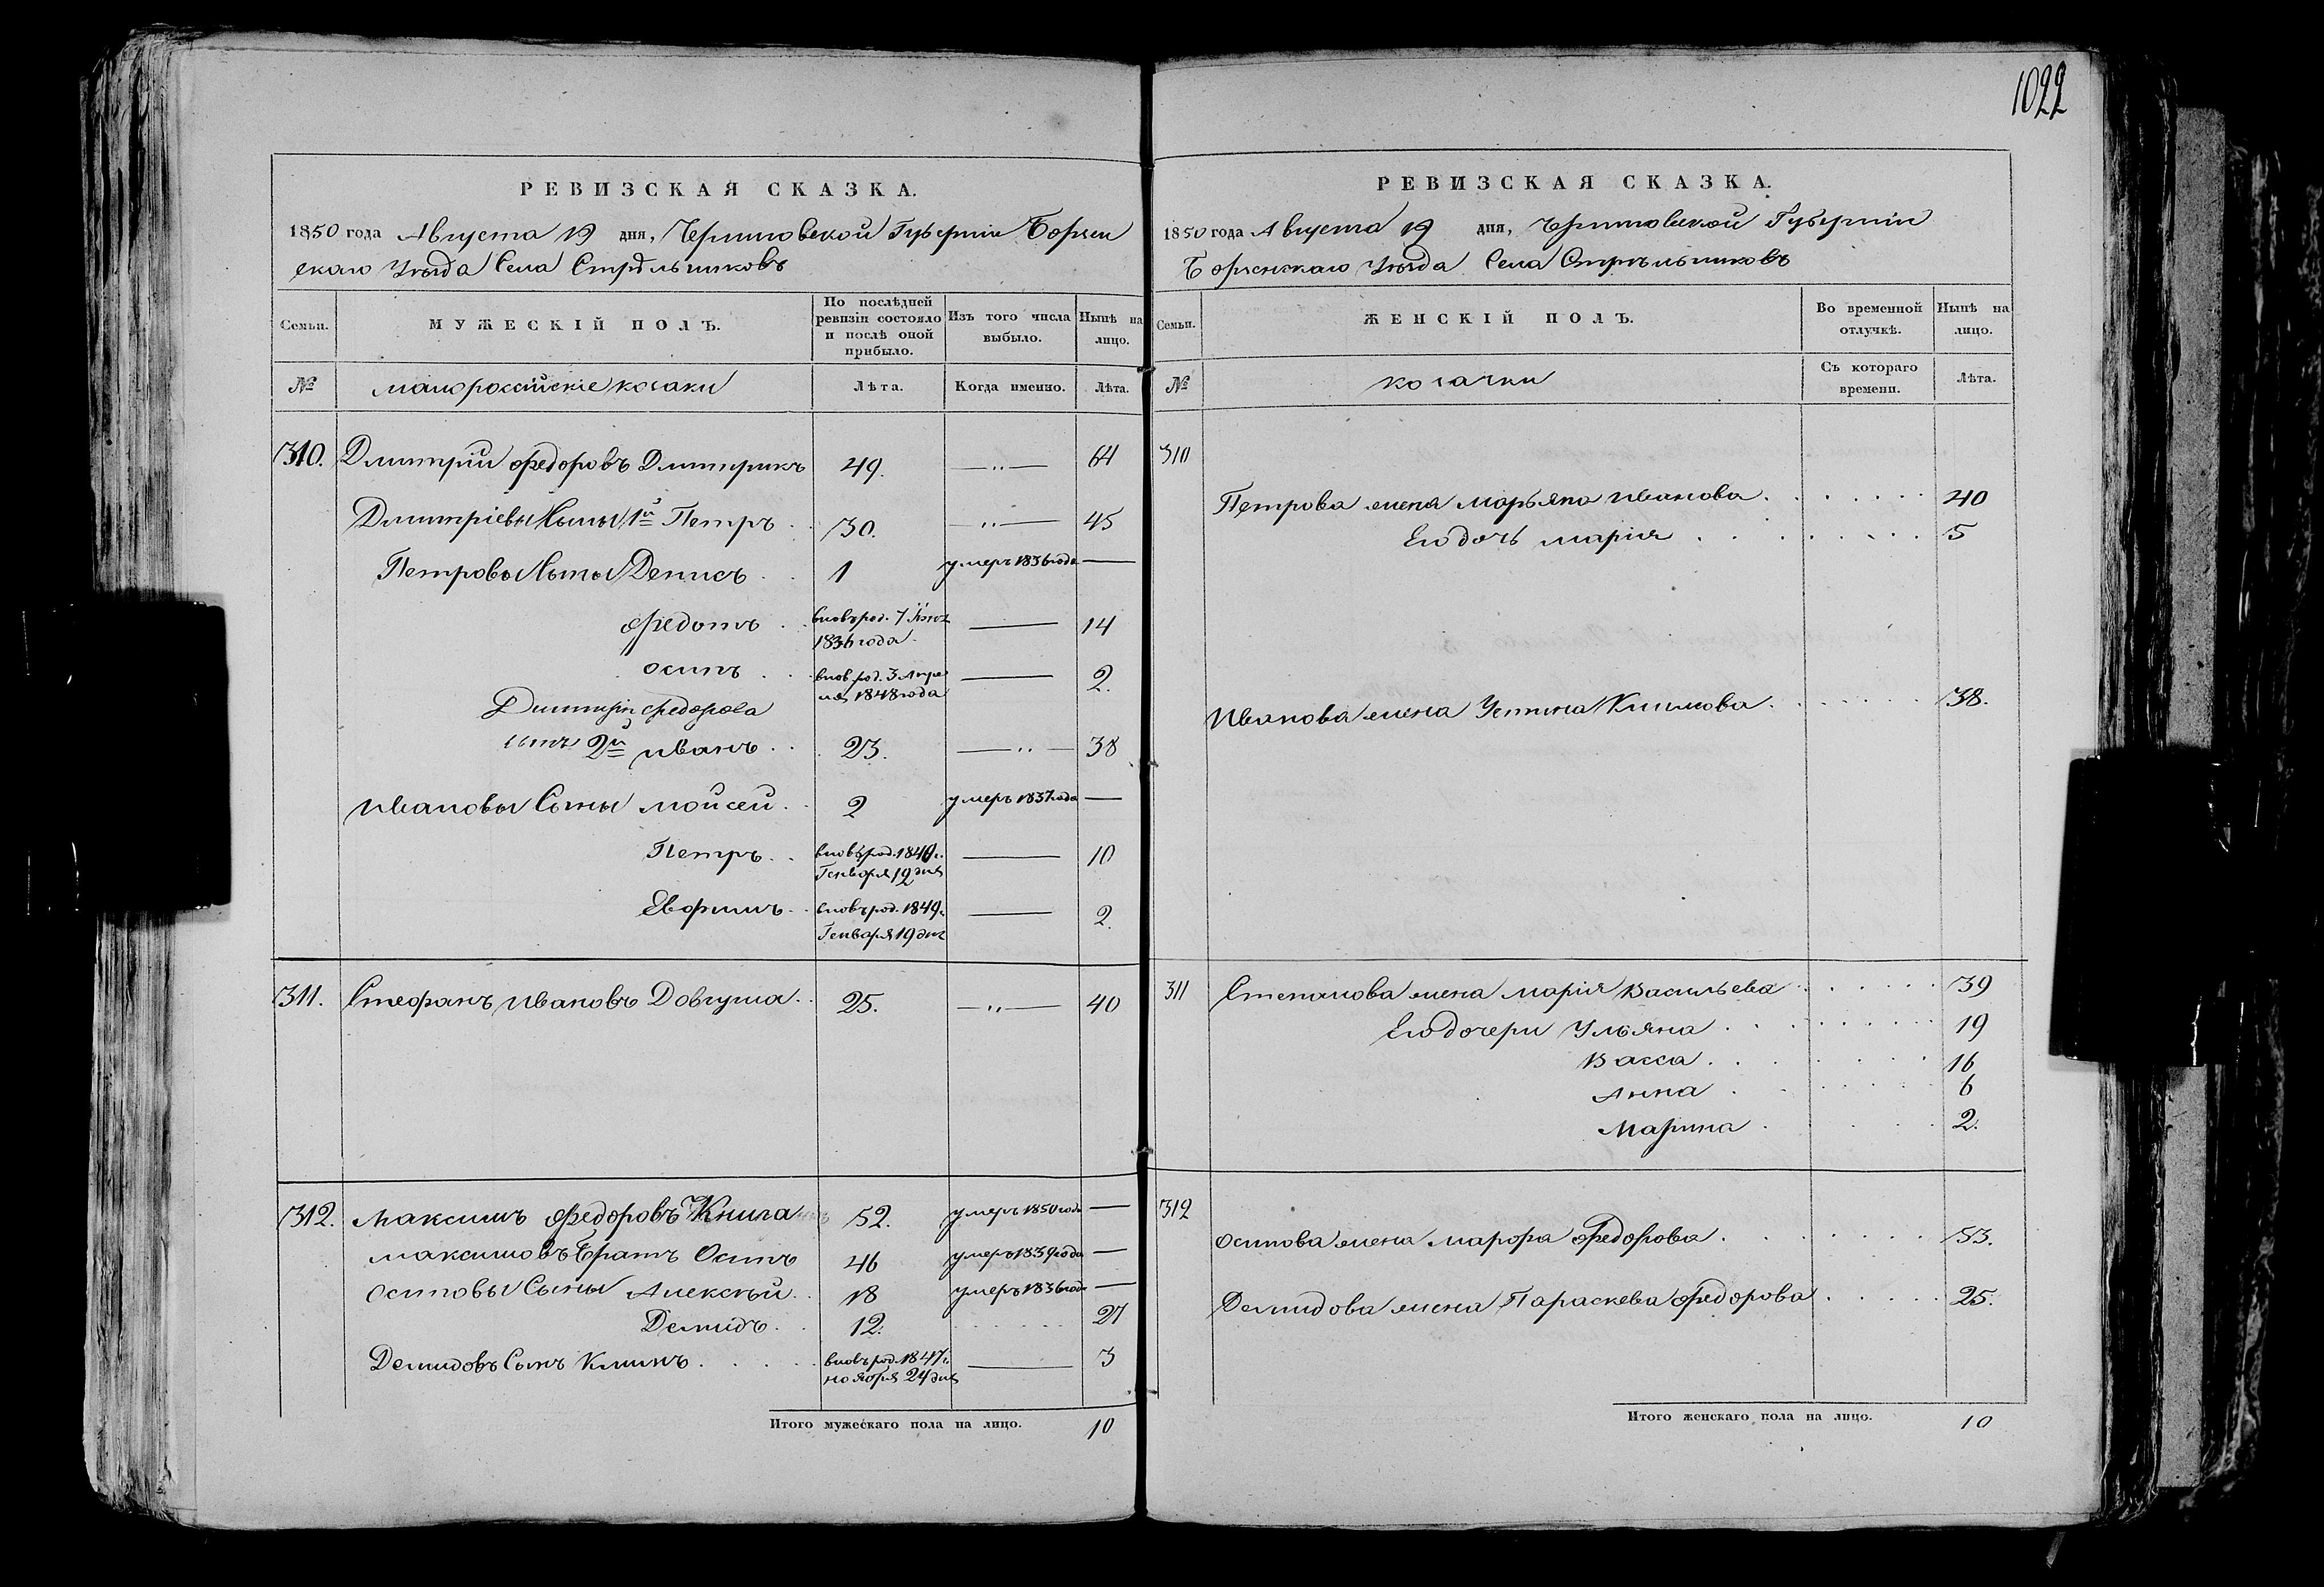 1022
РЕВИЗСКАЯ СКАЗКА.
1850 года Августа 19 дня, Черниговской Губерніи Борзен
скаго Уѣзда Села Стрѣльниковъ
Семьи.
МУЖЕСКІЙ ПОЛЪ.
По послѣдней ревизіи состояло и послѣ оной прибыло.
Изъ того числа выбыло.
Нынѣ на лицо.
№
малороссійскіе козаки
Лѣта.
Когда именно.
Лѣта.
310. Дмитрій Федоровъ Дмитрикъ 49. —"— 64
Дмитріевы Сыны 1й Петръ 30. "— 45
Петровы Сыны Денисъ 1 умеръ 1836 года —
Федотъ вновь род. 7
1836 года — 14
Осипъ вновь род. 3 Апре
ля 1848 года — 2.
Дмитрія Федорова
сынъ 2й Иванъ 23. —"— 38
Ивановы Сыны Мойсей 2 умеръ 1837 года —
Петръ вновь род. 1840 г.
Генваря 12 дня — 10
Евфимъ вновь род. 1849 г.
Генваря 19 дня — 2.
311. Стефанъ Ивановъ Довгуша 25. —"— 40
312. Максимъ Федоровъ Книга 52. умеръ 1850 года —
Максимовъ Братъ Осипъ 46 умеръ 1839 года —
Осиповы Сыны Алексѣй 18 умеръ 1836 года —
Демидъ 12. 27
Демидовъ Сынъ Климъ вновь род. 1847 г.
ноября 24 дня — 3
Итого мужескаго пола на лицо. 10
РЕВИЗСКАЯ СКАЗКА.
1850 года Августа 19 дня, Черниговской Губерніи
Борзенскаго Уѣзда Села Стрѣльниковъ
Семьи.
ЖЕНСКІЙ ПОЛЪ.
Во временной отлучкѣ.
Нынѣ на лицо.
№
козачки
Съ котораго времени.
Лѣта.
310
Петрова жена Марьяна Иванова 40
Его дочь Марія 5
Иванова жена Устина Климова 38.
311 Степанова жена Марія Васильева 39
Его дочери Ульяна 19
Васса 16
Анна 6
Марина 2.
312
Осипова жена Марфа Федорова 53.
Демидова жена Параскева Федорова 25.
Итого женскаго пола на лицо. 10